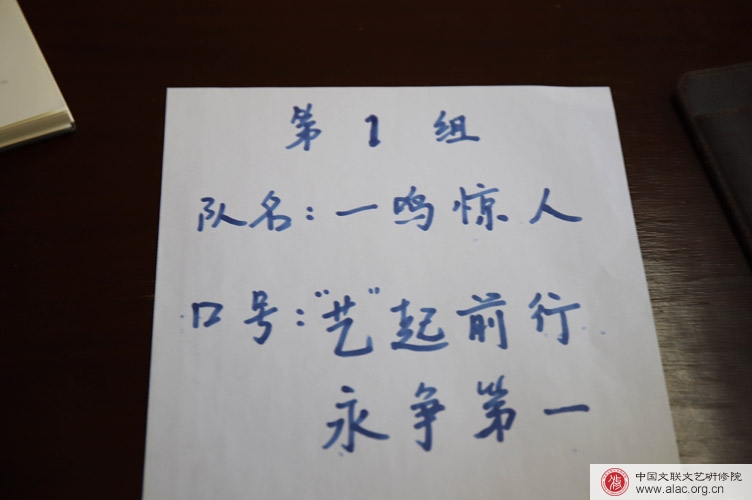 第1组
队名：一鸣惊人
口号：“艺”起前行
永争第一
中国文联文艺研修院
www.alac.org.cn